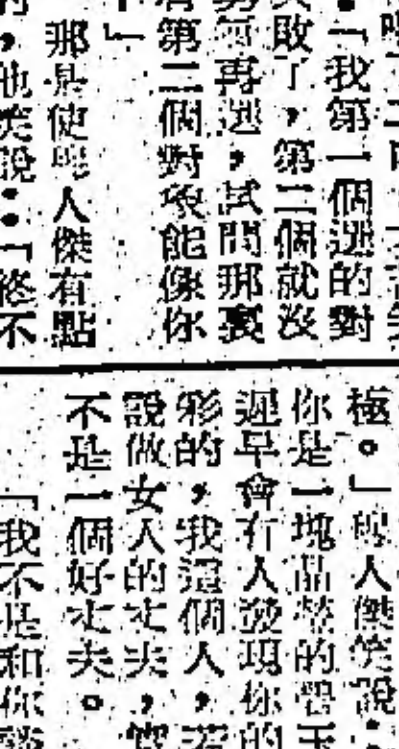 ：「我第一個選的對
失敗了，第二個就沒
勇氣再選，試問那裏
第二個對象能像你
」
那是使人傑有點
，他笑說：「
極。」人傑笑說：
你是一塊晶瑩的碧玉
遲早會有人發現你的
彩的，我這個人，若
說做女人的丈夫，
不是一個好丈夫。
「我不是和你談